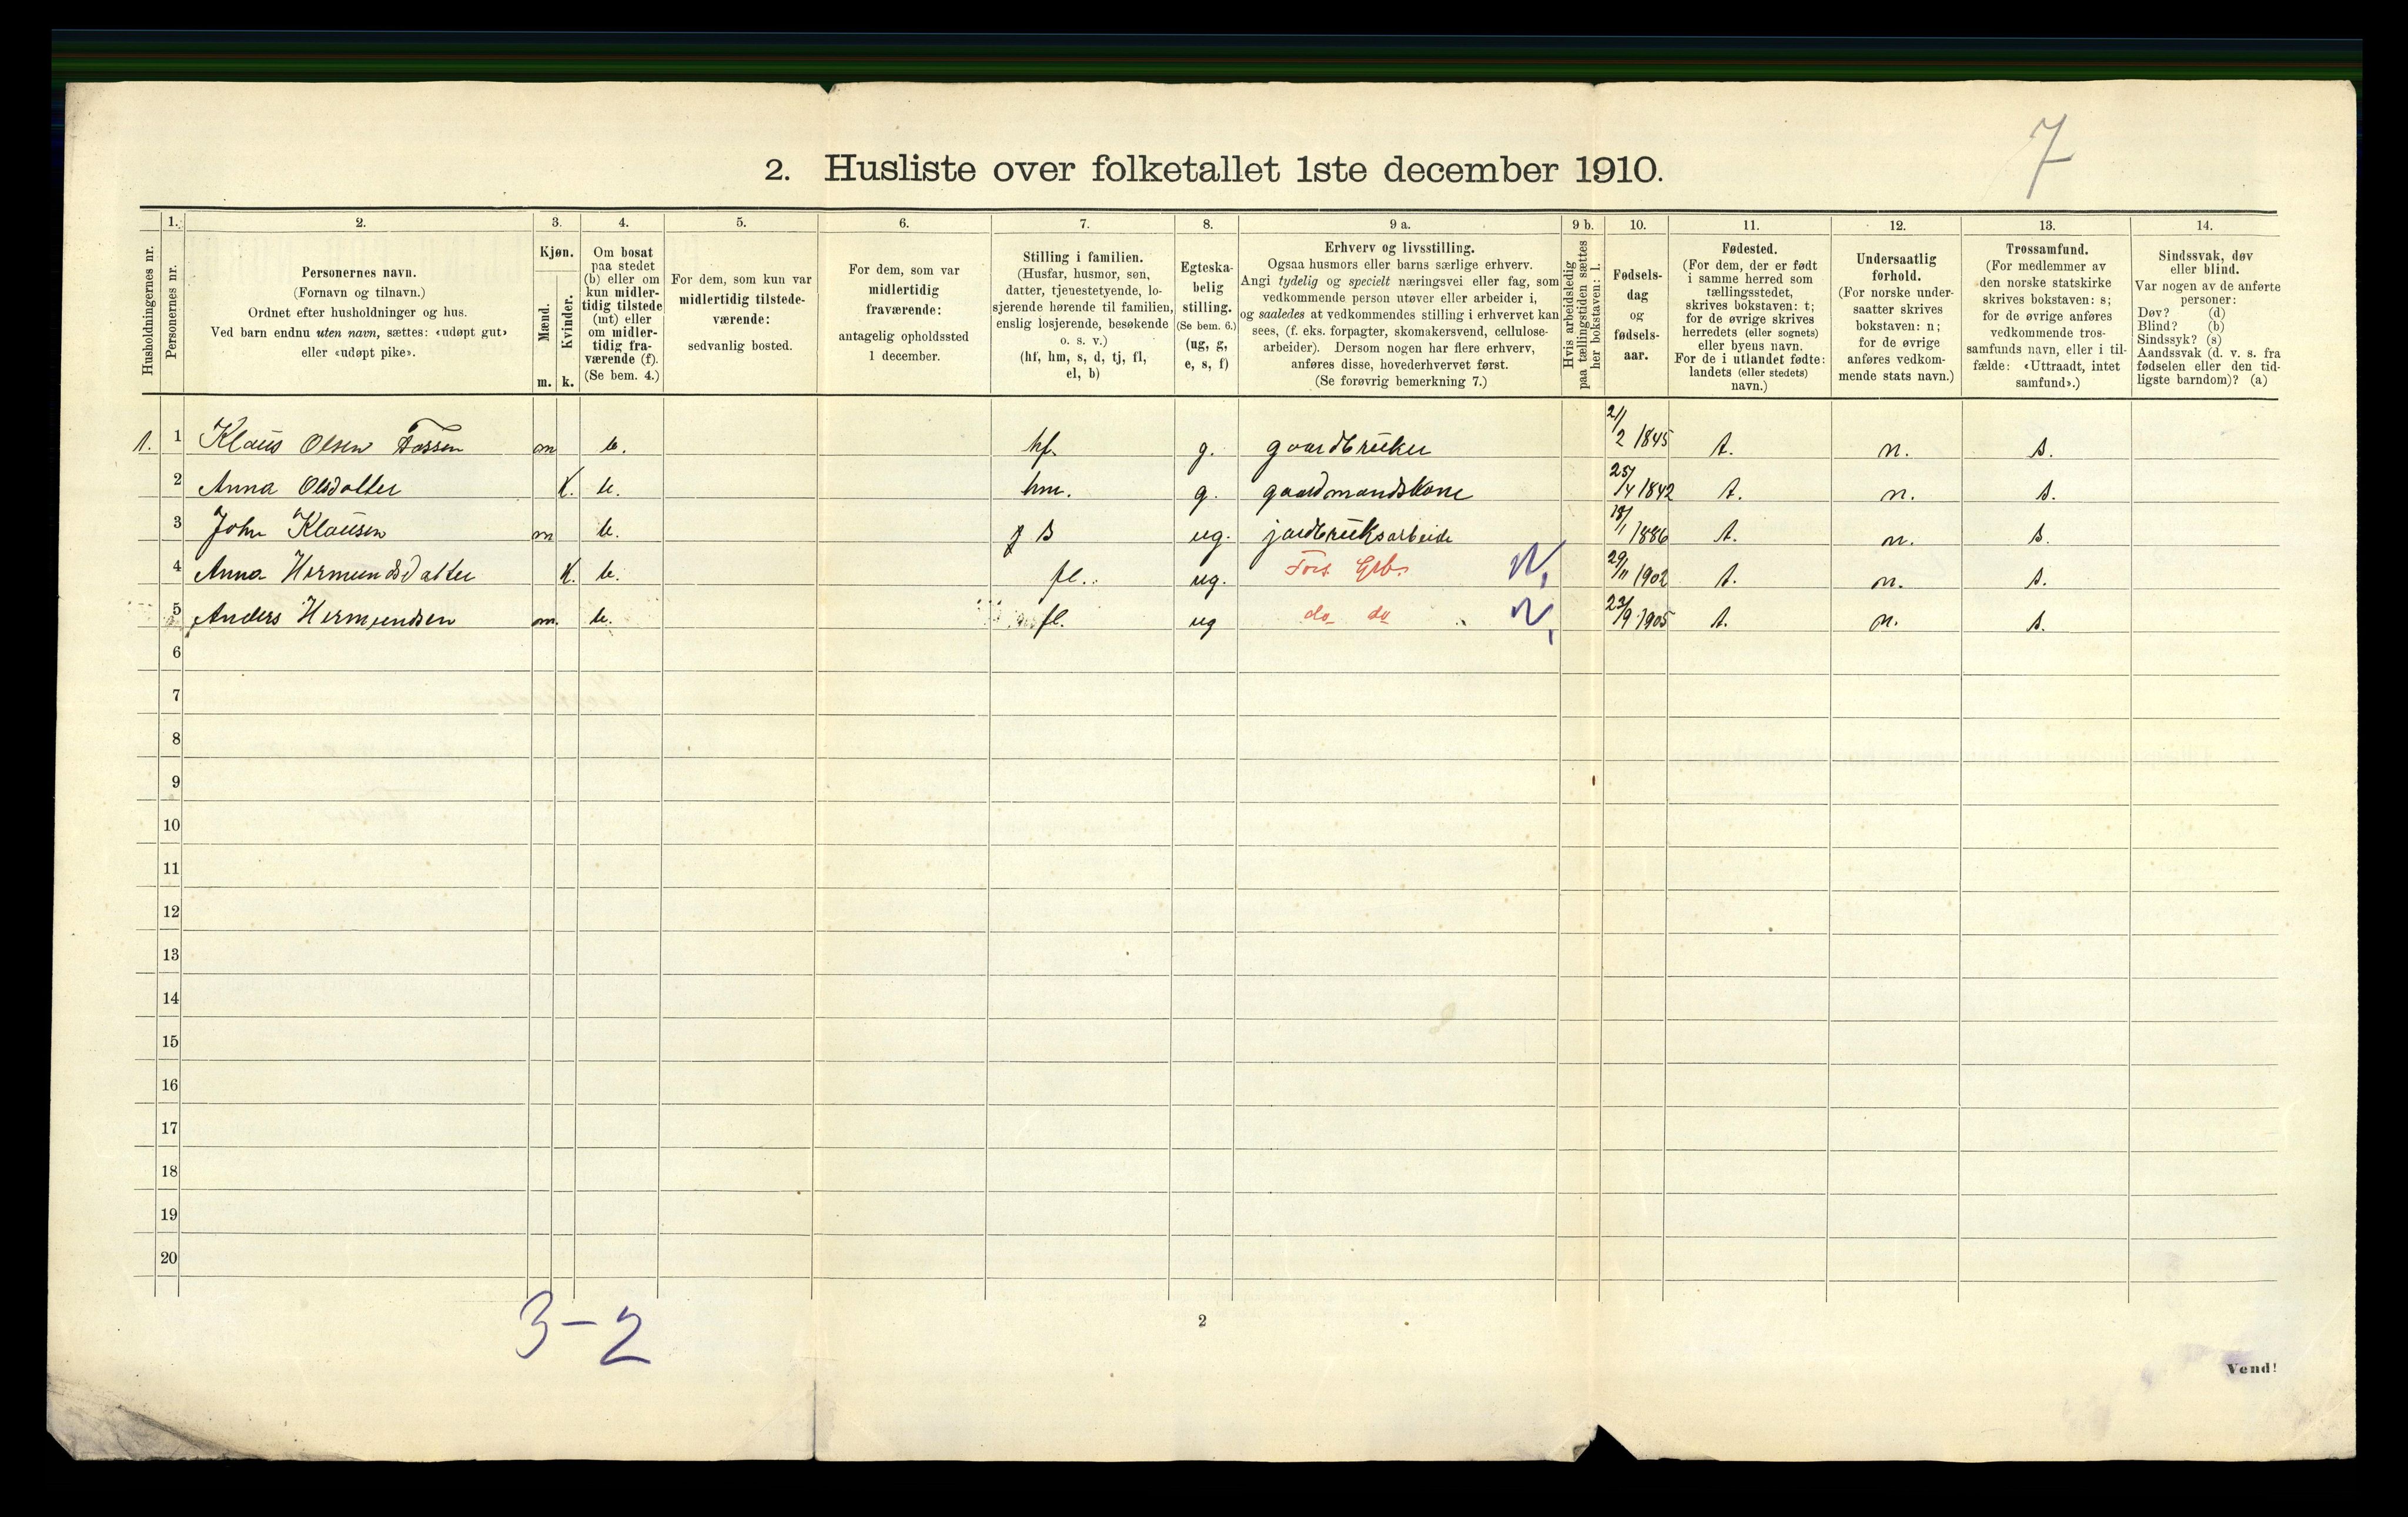 7
2. Husliste over folketallet 1ste december 1910.
Husholdningernes nr.
1.
Personernes nr.
2.
Personernes navn.
(Fornavn og tilnavn.)
Ordnet efter husholdninger og hus.
Ved barn endnu uten navn, sættes: «udøpt gut»
eller «udøpt pike».
3.
Kjøn.
Mænd.
Kvinder.
m. k.
4.
Om bosat
paa stedet
(b) eller om
kun midler-
tidig tilstede
(mt) eller
om midler-
tidig fra-
værende (f).
(Se bem. 4.)
5.
For dem, som kun var
midlertidig tilstede-
værende:
sedvanlig bosted.
6.
For dem, som var
midlertidig
fraværende:
antagelig opholdssted
1 december.
7.
Stilling i familien.
(Husfar, husmor, søn,
datter, tjenestetyende, lo-
sjerende hørende til familien,
enslig losjerende, besøkende
o. s. v.)
(hf, hm, s, d, tj, fl,
el, b)
8.
Egteska-
belig
stilling.
(Se bem. 6.)
(ug, g,
e, s, f)
9 a.
Erhverv og livsstilling.
Ogsaa husmors eller barns særlige erhverv.
Angi tydelig og specielt næringsvei eller fag, som
vedkommende person utøver eller arbeider i,
og saaledes at vedkommendes stilling i erhvervet kan
sees, (f. eks. forpagter, skomakersvend, cellulose-
arbeider). Dersom nogen har flere erhverv,
anføres disse, hovederhvervet først.
(Se forøvrig bemerkning 7.)
9 b.
Hvis arbeidsledig
paa tællingstiden sættes
her bokstaven: l.
10.
Fødsels-
dag
og
fødsels-
aar.
11.
Fødested.
(For dem, der er født
i samme herred som
tællingsstedet,
skrives bokstaven: t;
for de øvrige skrives
herredets (eller sognets)
eller byens navn.
For de i utlandet fødte:
landets (eller stedets)
navn.)
12.
Undersaatlig
forhold.
(For norske under-
saatter skrives
bokstaven: n;
for de øvrige
anføres vedkom-
mende stats navn.)
13.
Trossamfund.
(For medlemmer av
den norske statskirke
skrives bokstaven: s;
for de øvrige anføres
vedkommende tros-
samfunds navn, eller i til-
fælde: «Uttraadt, intet
samfund».)
14.
Sindssvak, døv
eller blind.
Var nogen av de anførte
personer:
Døv? (d)
Blind? (b)
Sindssyk? (s)
Aandssvak (d. v. s. fra
fødselen eller den tid-
ligste barndom)? (a)
1. 1 Klaus Olsen Fossen m b. hf. g. gaardbruker 21/2 1845 t. n. s.
2 Anna Olsdatter k. b. hm. g. gaardmandskone 25/4 1842 t. n. s.
3 John Klausen m b. s ug. jordbruksarbeide 18/1 1886 t. n. s.
4 Anna Hermundsdatter k. b. fl. ug. Fors. Grb. N, 29/11 1902 t. n. s.
5 Anders Hermundsen m. b. fl. ug do do N, 23/9 1905 t. n. s.
6
7
8
9
10
11
12
13
14
15
16
17
18
19
20
3-2
2
Vend!